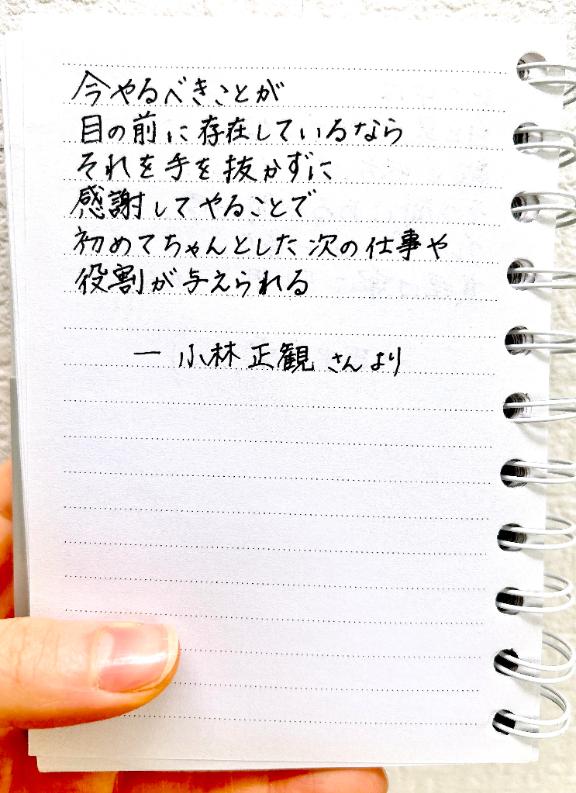 今やるべきことが
目の前に存在しているなら
それを手を抜かずに
感謝してやることで
初めてちゃんとした次の仕事や
役割が与えられる
― 小林正観さんより